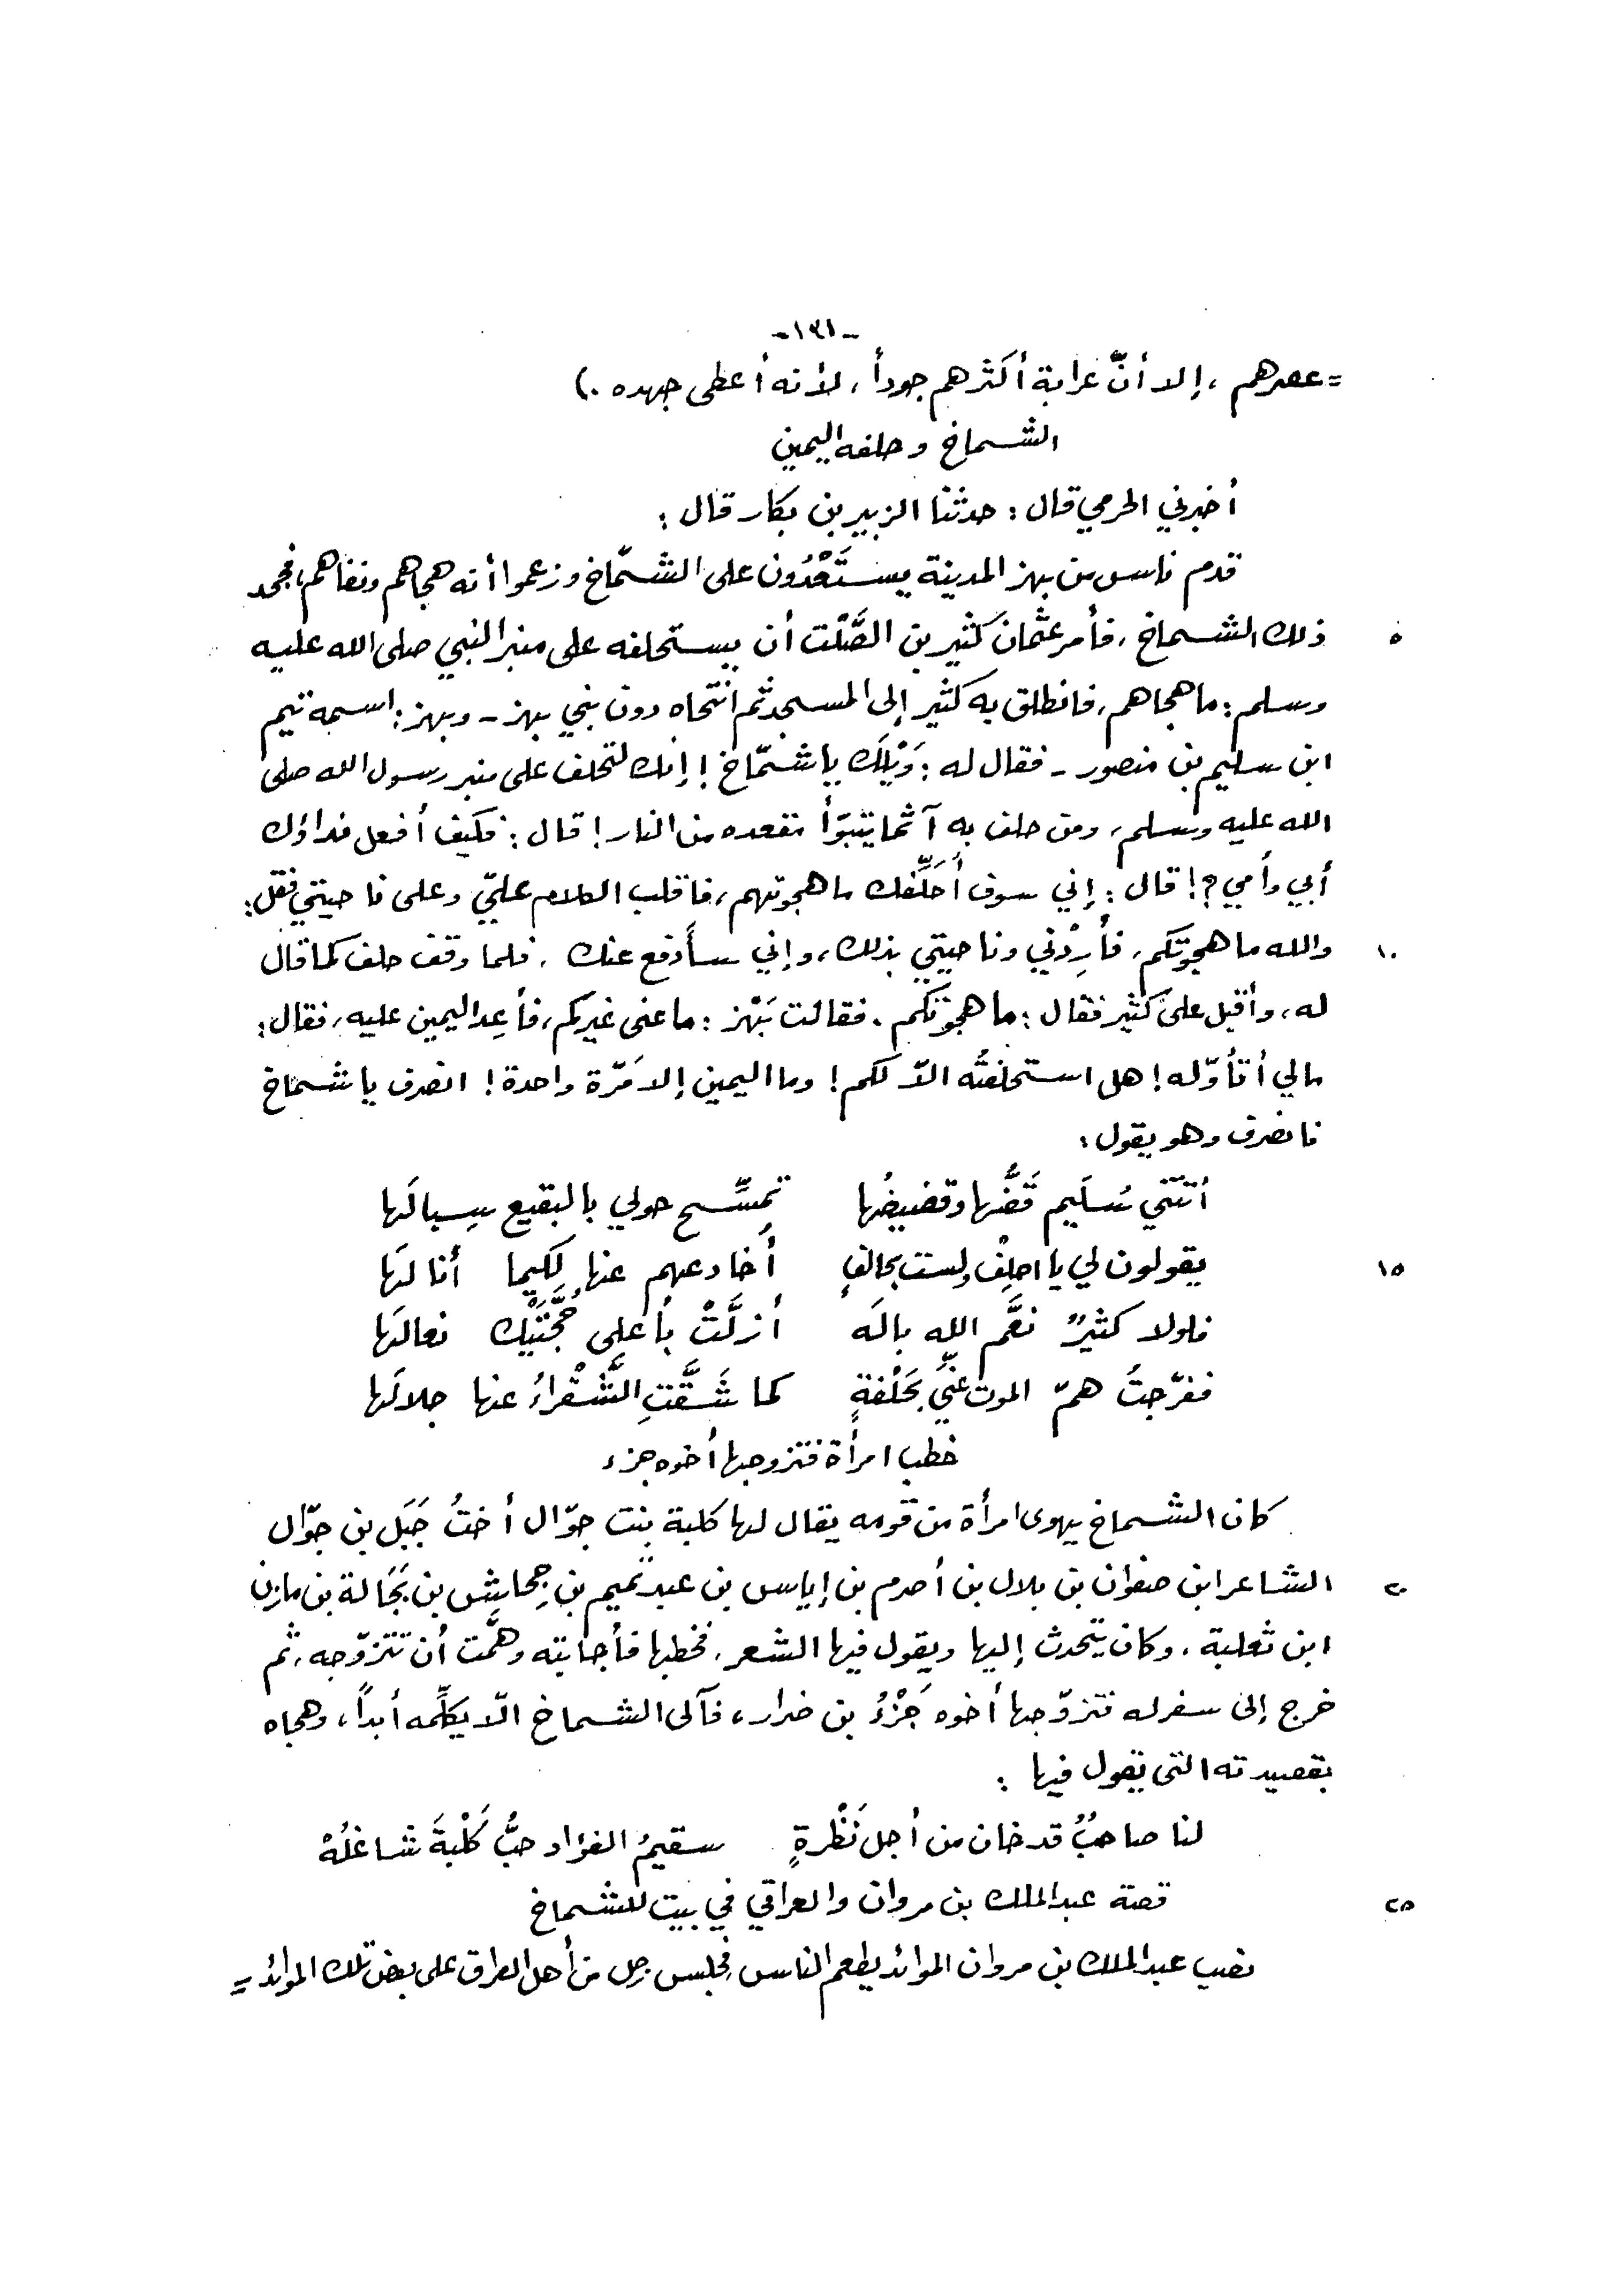 -١٢١-
=عصرهم ، إلا أنّ عرابة أكثرهم جوداً ، لأنه أعطى جهده .)
الشماخ وحلفه اليمين
أخبرني الحرمي قال : حدثنا الزبير بن بكار قال :
قدم ناس من بهز المدينة يستَعْدُون على الشمّاخ وزعموا أنه هجاهم ونفاهم، فجحد
٥ ذلك الشماخ ، فأمر عثمان كثير بن الصَّلْت أن يستحلفه على منبر النبي صلى الله عليه
وسلم : ما هجاهم، فانطلق به كثير إلى المسجد ثم انتحاه دون بني بهز - وبهز : اسمه تيم
ابن سليم بن منصور - فقال له : وَيْلَك يا شمّاخ ! إنك لتحلف على منبر رسول الله صلى
الله عليه وسلم، ومن حلف به آثما يتبوّأ مقعده من النار ! قال : فكيف أفعل فداؤك
أبي وأمي ؟! قال : إني سوف أُحَلِّفك ما هجوتهم ، فاقلب الكلام عليّ وعلى ناحيتي فقل :
١٠ والله ما هجوتكم، فأَرِدْني وناحيتي بذلك ، وإني سأَدفع عنك . فلما وقف حلف كما قال
له ، وأقبل على كثير فقال : ما هجوتكم . فقالت بَهْز : ما عنى غيركم ، فأَعِد اليمين عليه ، فقال :
مالي أتأوّله ! هل استحلفتُه الاّ لكم ! وما اليمين إلا مَرّة واحدة ! انصرف يا شماخ
فانصرف وهو يقول :
أتتني سُلَيم قَضُّها وقضيضُها تمسِّح حولي بالبقيع سِبالَها
١٥ يقولون لي يا احلِفْ ولست بحالفٍ أُخادعهم عنها لكيما أنالَها
فلولا كثيرٌ نعَّم الله بالَه أزلَّتْ بأعلى حُجَّتَيْك نعالَها
ففرّجتُ همّ الموت عنِّي بحَلْفةٍ كما شَقَّتِ الشَّقْراءُ عنها جلالَها
خطب امرأة فتزوجها أخوه جزء
كان الشماخ يهوى امرأة من قومه يقال لها كلبة بنت جوّال أختُ جَبَل بن جوّال
٢٠ الشاعر ابن صفوان بن بلال بن أصرم بن إياس بن عبد تميم بن جِحاش بن بَجَالة بن مازن
ابن ثعلبة . وكان يتحدث إليها ويقول فيها الشعر ، فخطبها فأجابته وهمَّت أن تتزوّجه ، ثم
خرج إلى سفر له فتزوّجها أخوه جَزْءُ بن ضرار ، فآلى الشماخ الاّ يكلِّمه أبداً ، وهجاه
بقصيدته التي يقول فيها :
لنا صاحبٌ قد خان من أجل نَظْرةٍ سقيمُ الفؤاد حبُّ كَلْبةَ شاغلُهْ
٢٥ قصة عبد الملك بن مروان والعراقي في بيت للشماخ
نصب عبد الملك بن مروان الموائد يطعم الناس فجلس رجل من أهل العراق على بعض تلك الموائد =